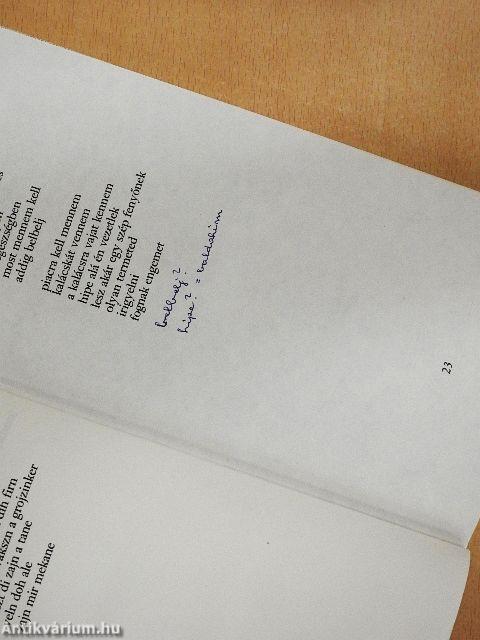 egészségben
most mennem kell
addig betbelj
piacra kell mennem
kalácskát vennem
a kalácsra vajat kennem
hipe alá én vezetlek
lesz akár egy szép fenyőnek
olyan termeted
irigyelni
fognak engemet
betbelj?
hipe? = baldahim
23
dih firn
akszn a grojzinker
zt di zajn a tane
eln doh ale
jn mir mekane
Antikvárium.hu